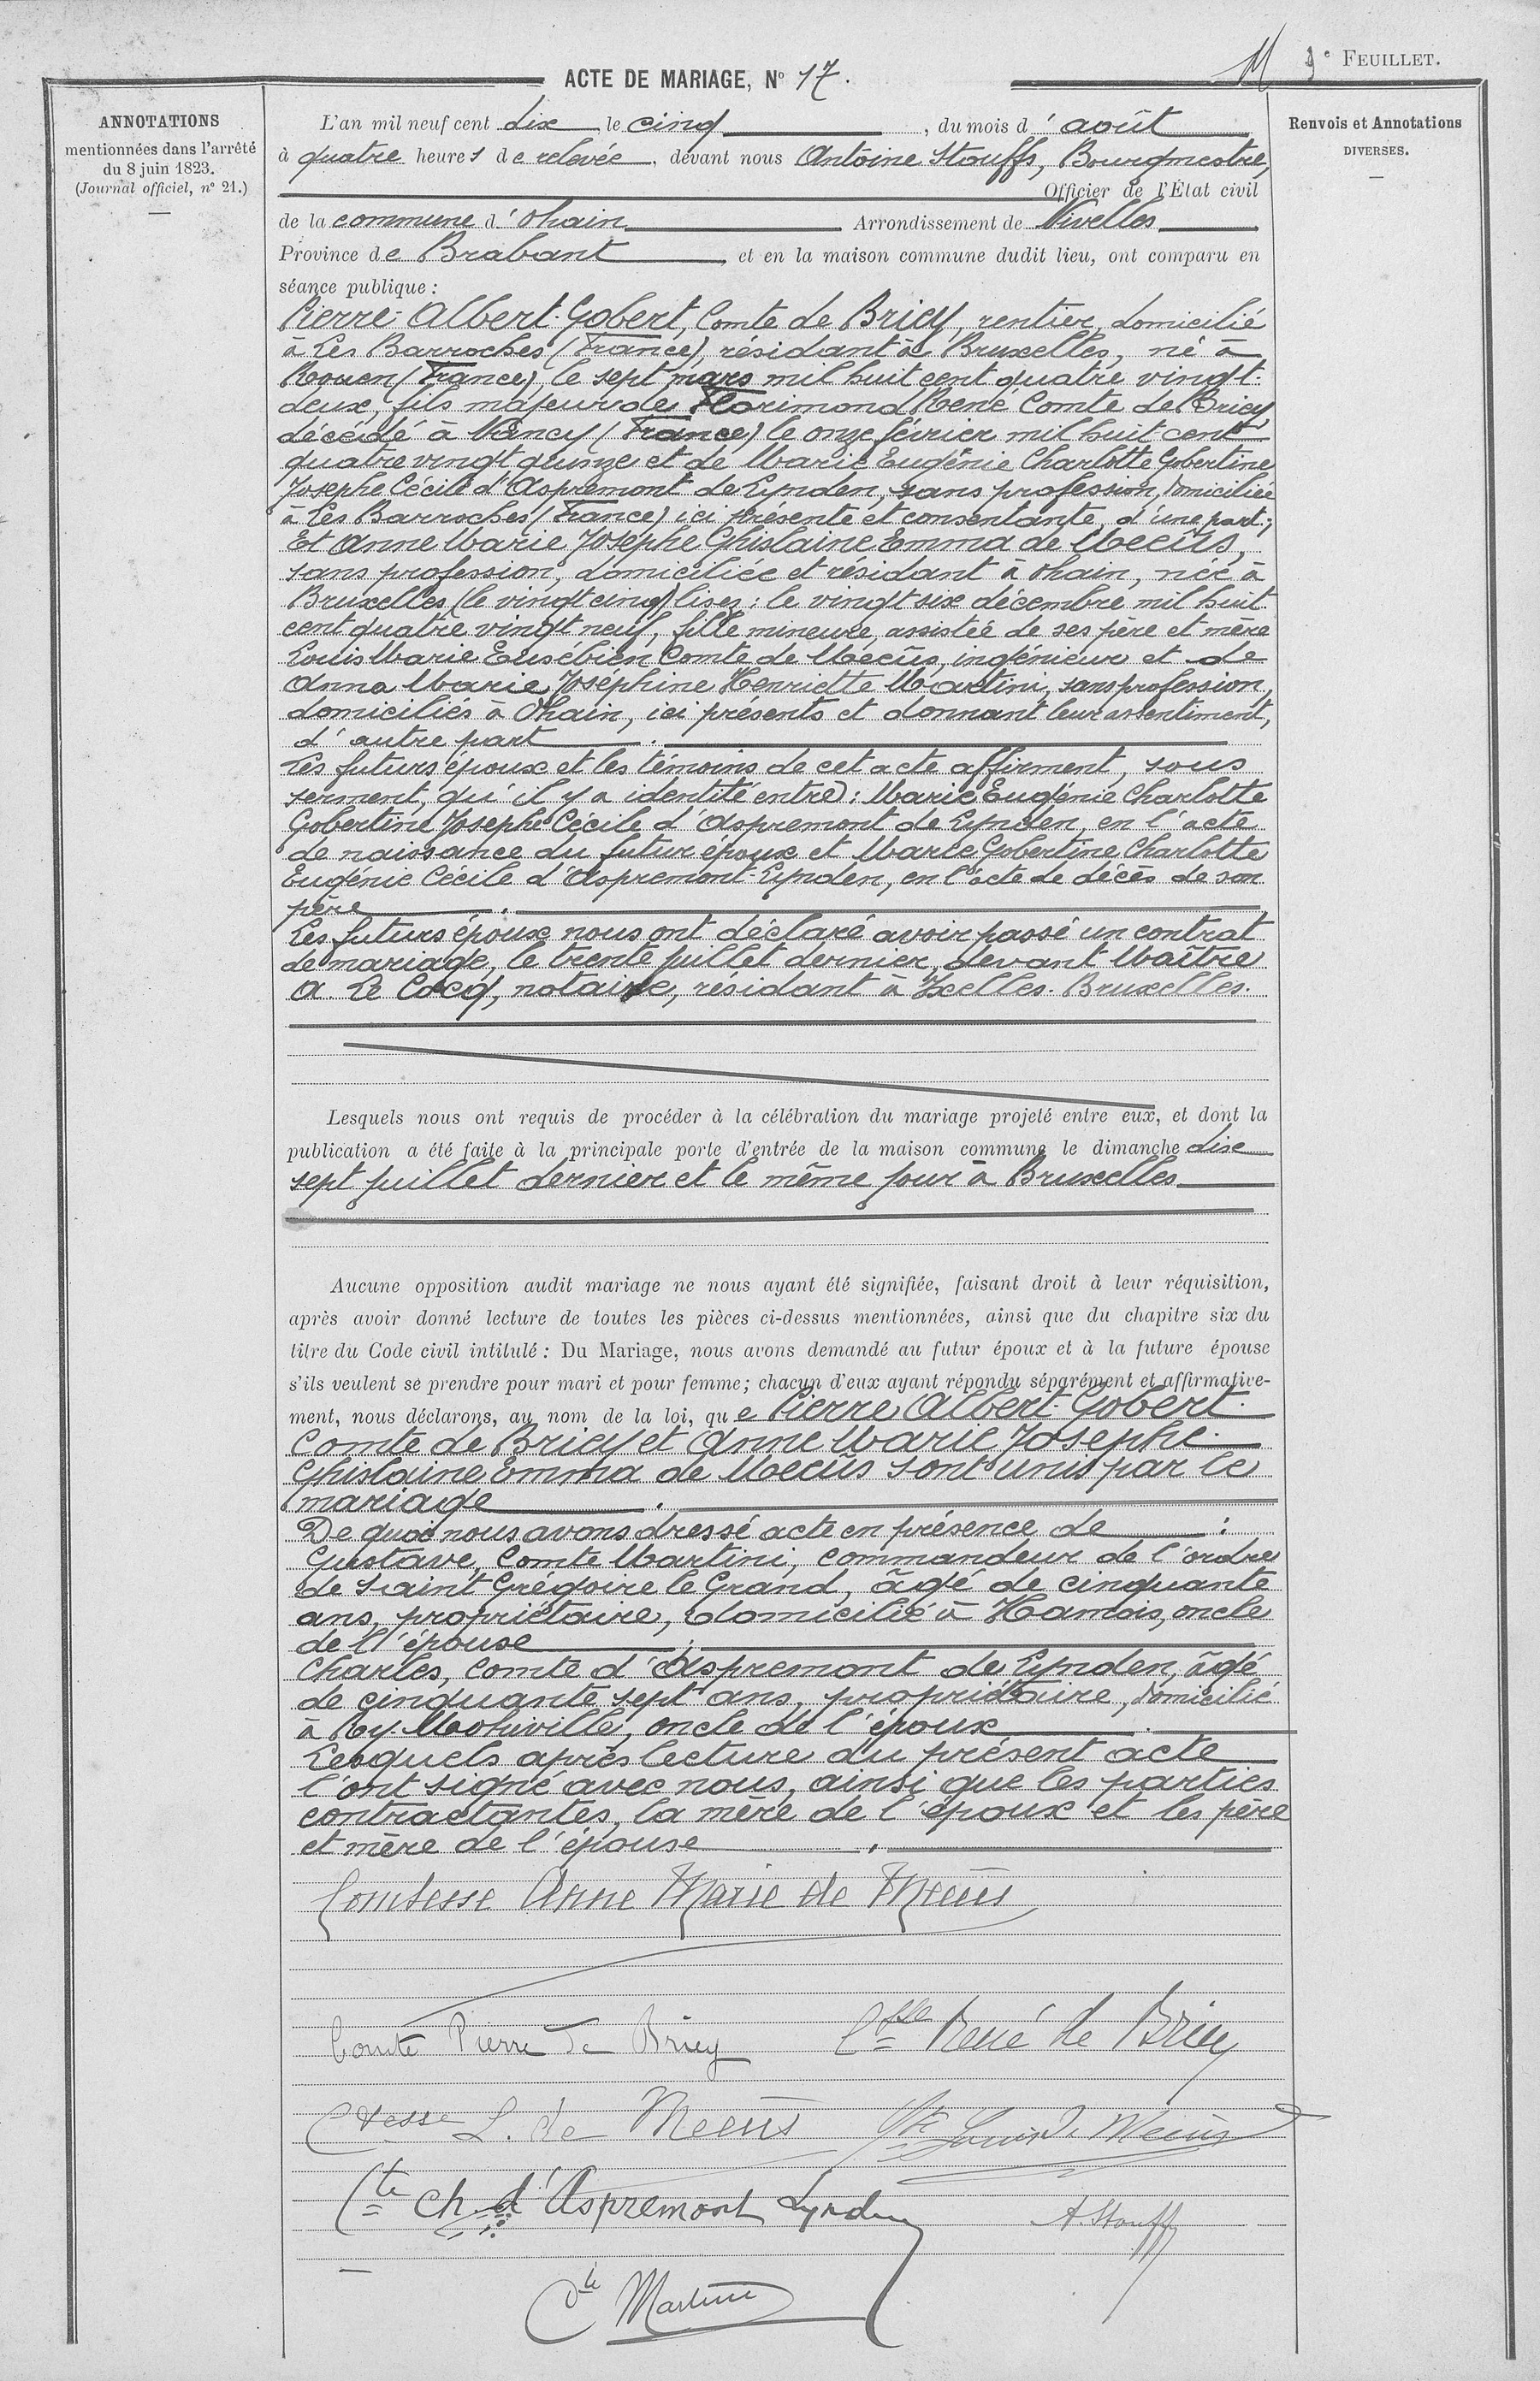 9e FEUILLET.
ACTE DE MARIAGE, No 17.
ANNOTATIONS
mentionnées dans l'arrêté
du 8 juin 1823.
(Journal officiel, no 21.)
Renvois et Annotations
DIVERSES.
L'an mil neuf cent dix, le cinq, du mois d'août
à quatre heures de relevée, devant nous Antoine Stouffs, Bourgmestre,
Officier de l'État civil
de la commune d'Ohain Arrondissement de Nivelles
Province de Brabant, et en la maison commune dudit lieu, ont comparu en
séance publique :
Pierre-Albert-Gobert, Comte de Briey, rentier, domicilié
à Les Barroches (France), résidant à Bruxelles, né à
Rouen (France), le sept mars mil huit cent quatre vingt-
deux, fils majeur de Florimond René Comte de Briey
décédé à Nancy (France) le onze février mil huit cent
quatre vingt quinze et de Marie Eugénie Charlotte Gobertine
Josephe Cécile d'Aspremont de Lynden, sans profession, domiciliée
à Les Barroches (France) ici présente et consentante, d'une part ;
Et Anne Marie Josephe Ghislaine Emma de Meeûs,
sans profession, domiciliée et résidant à Ohain, née à
Bruxelles (le vingt cinq) lisez : le vingt six décembre mil huit
cent quatre vingt neuf, fille mineure, assistée de ses père et mère
Louis Marie Eusébien Comte de Meeûs, ingénieur et de
Anna Marie Joséphine Henriette Martini, sans profession,
domiciliés à Ohain, ici présents et donnant leur assentiment,
d'autre part.
Les futurs époux et les témoins de cet acte affirment, sous
serment, qu'il y a identité entre : Marie Eugénie Charlotte
Gobertine Josephe Cécile d'Aspremont de Lynden, en l'acte
de naissance du futur époux et Marie Gobertine Charlotte
Eugénie Cécile d'Aspremont-Lynden, en l'acte de décès de son
père.
Les futurs époux nous ont déclaré avoir passé un contrat
de mariage, le trente juillet dernier, devant Maître
A. Le Cocq, notaire, résidant à Ixelles-Bruxelles.
Lesquels nous ont requis de procéder à la célébration du mariage projeté entre eux, et dont la
publication a été faite à la principale porte d'entrée de la maison commune le dimanche dix
sept juillet dernier et le même jour à Bruxelles
Aucune opposition audit mariage ne nous ayant été signifiée, faisant droit à leur réquisition,
après avoir donné lecture de toutes les pièces ci-dessus mentionnées, ainsi que du chapitre six du
titre du Code civil intitulé : Du Mariage, nous avons demandé au futur époux et à la future épouse
s'ils veulent se prendre pour mari et pour femme ; chacun d'eux ayant répondu séparément et affirmative-
ment, nous déclarons, au nom de la loi, que Pierre Albert-Gobert-
Comte de Briey et Anne Marie Josephe-
Ghislaine Emma de Meeûs sont unis par le
mariage.
De quoi nous avons dressé acte en présence de :
Gustave, Comte Martini, commandeur de l'ordre
de Saint Grégoire le Grand, âgé de cinquante
ans, propriétaire, domicilié à Hamois, oncle
de l'épouse ;
Charles, Comte d'Aspremont de Lynden, âgé
de cinquante sept ans, propriétaire, domicilié
à oncle de l'époux.
Lesquels après lecture du présent acte
l'ont signé avec nous, ainsi que les parties
contractantes, la mère de l'époux et les père
et mère de l'épouse.
Comtesse Anne Marie de Meeûs
Comte Pierre de Briey
Csse René de Briey
Ctesse L. de Meeûs
Cte Louis de Meeûs
Cte Ch. d'Aspremont Lynden
A. Stouffs
Cte Martini